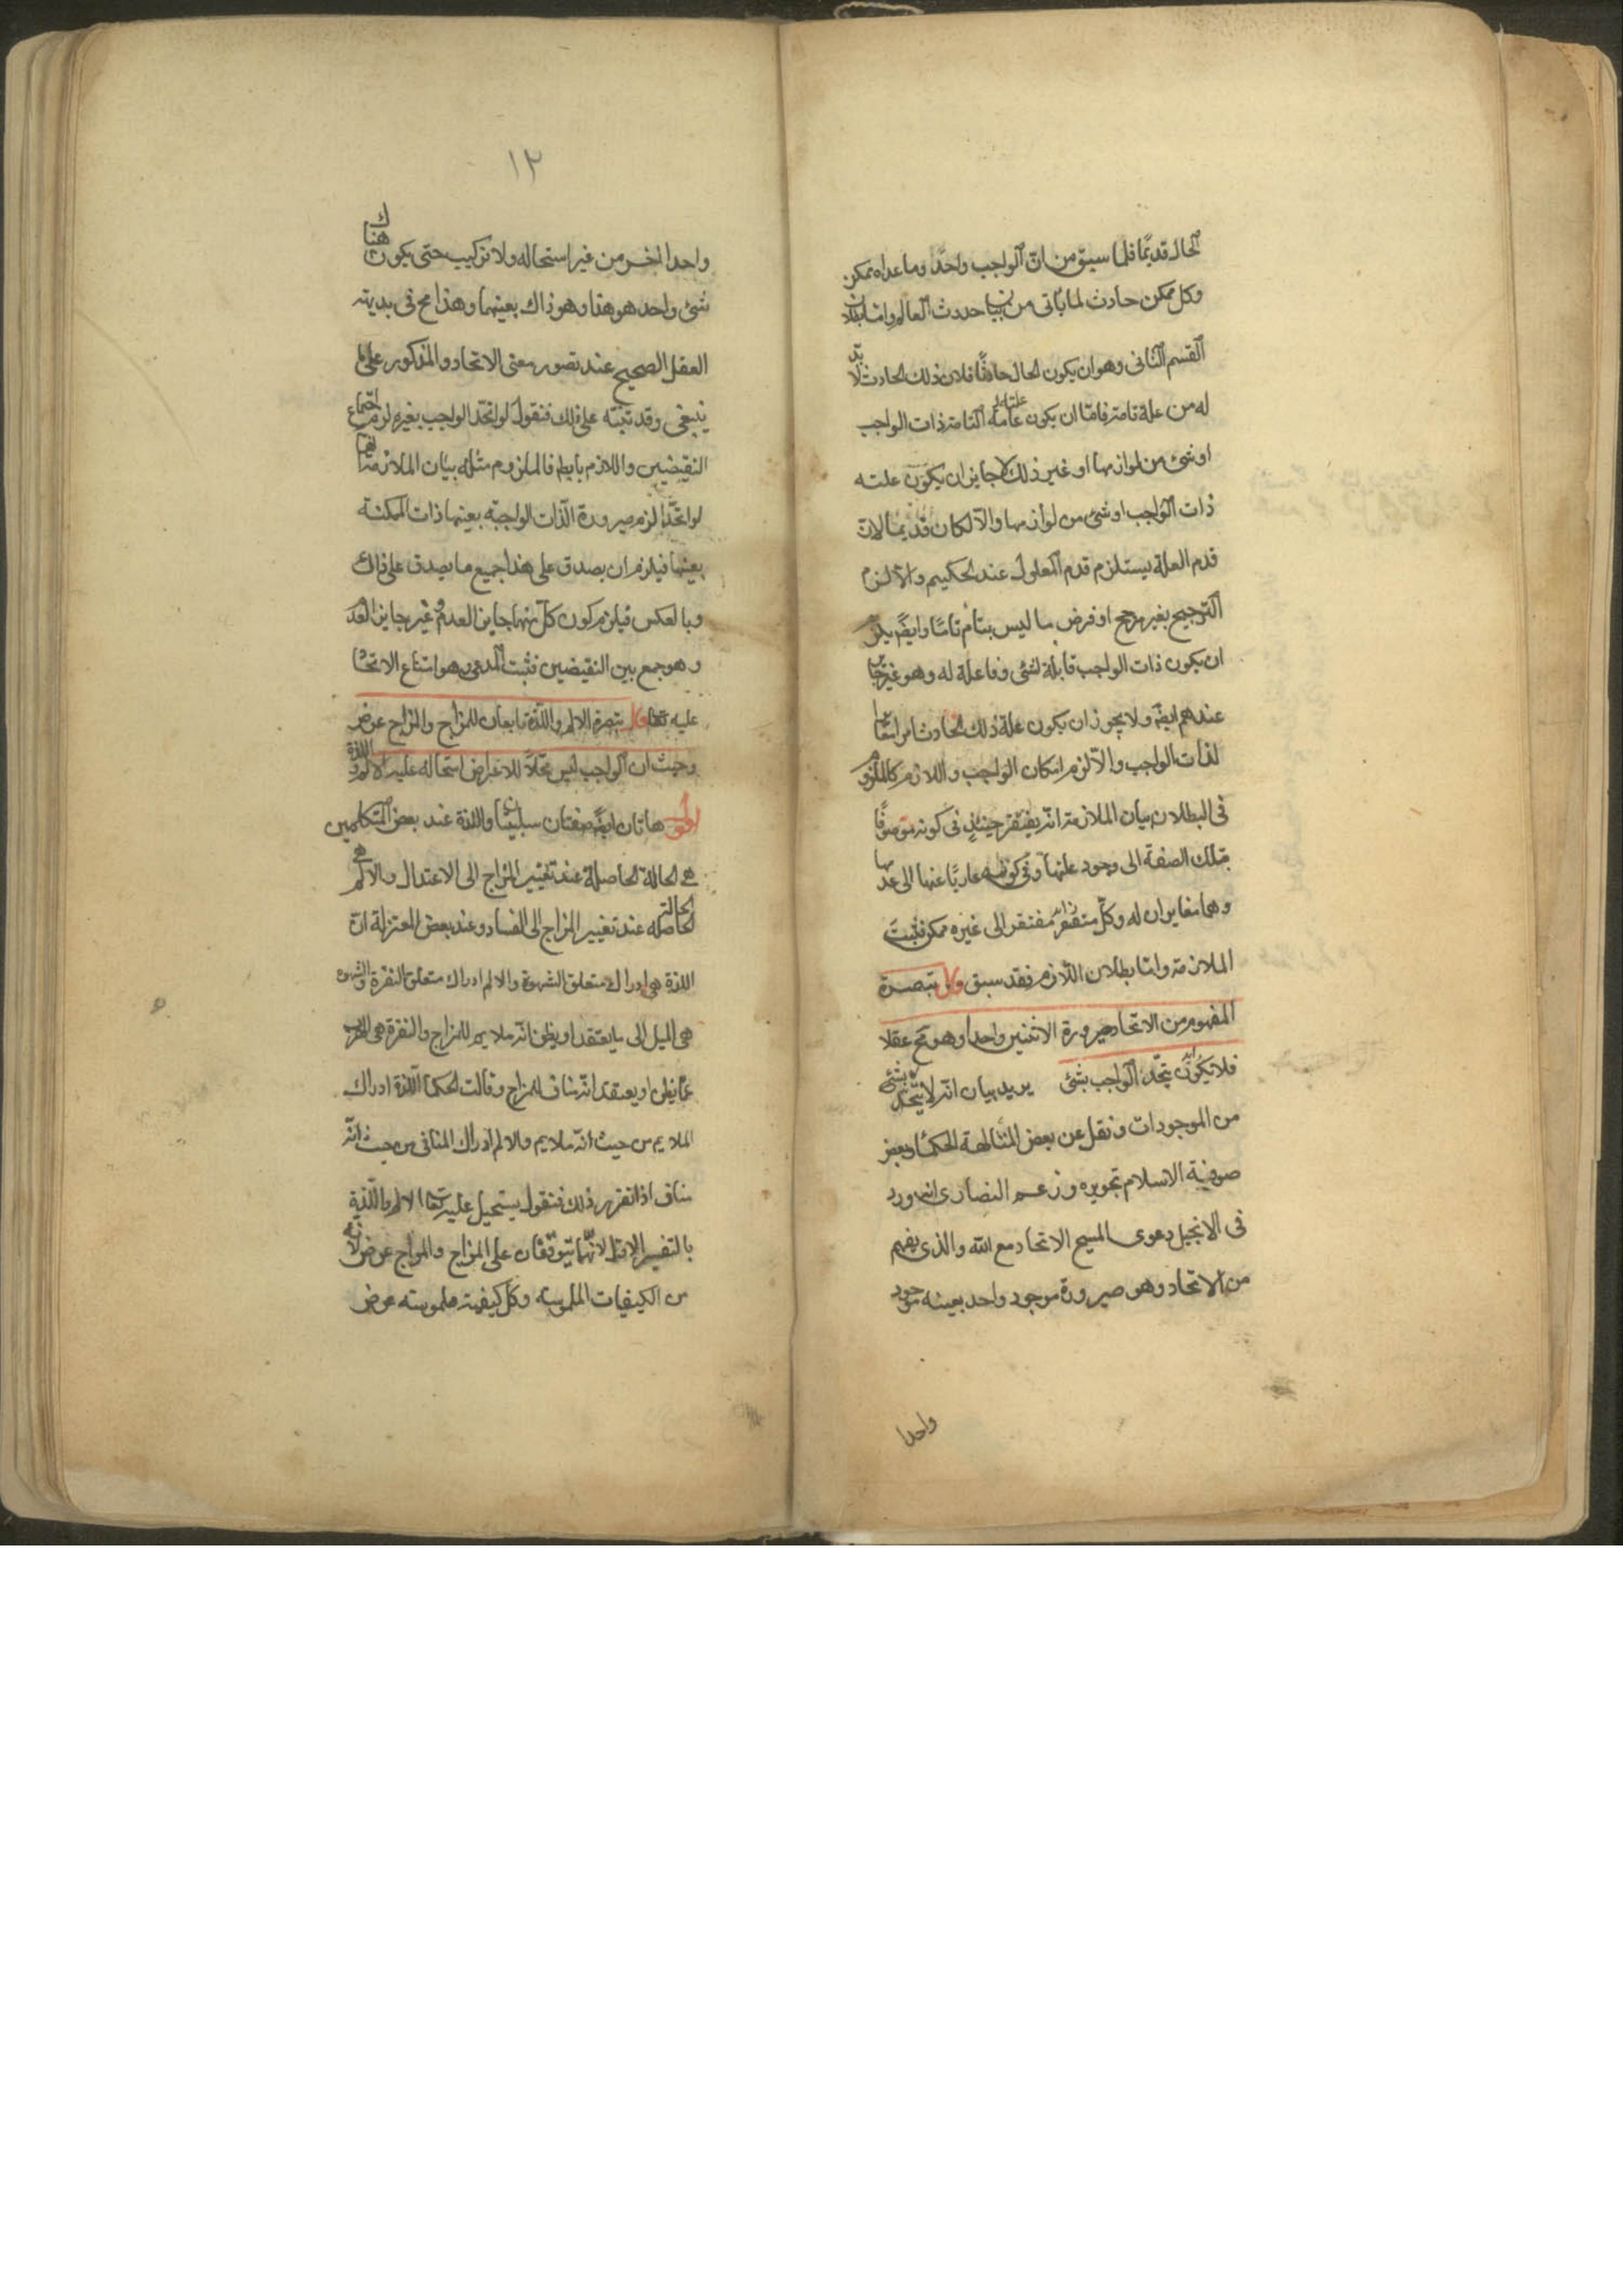 الحال قديمًا فلما سبق من انّ الواجب واحدًا وما عداه ممكن
وكل ممكن حادث لما يأتى من بيان حدوث العالم وامّا بطلان
القسم الثانى وهو ان يكون الحال حادثًا فلان ذلك الحادث لا بدّ
له من علة تامة فامّا ان يكون علته التامة ذات الواجب
او شئ من لوازمها او غير ذلك لا جايز ان يكون علته
ذات الواجب او شئ من لوازمها والّا لكان قديمًا لانّ
قدم العلة يستلزم قدم المعلول عند الحكيم والا لزم
الترجيح بغير مرجح او فرض ما ليس بتام تامًا وايضًا يلزم
ان يكون ذات الواجب قابلة لشئ وفاعلة له وهو غير جايز
عندهم ايضًا ولا يجوز ان يكون علة ذلك الحادث امرا مغايرا
لذات الواجب والّا لزم امكان الواجب واللازم كالملزوم
فى البطلان بيان الملازمة انّه يفتقر حينئذٍ فى كونه موصوفًا
بتلك الصفة الى وجود علتها وفى كونه عاريًا عنها الى عدمها
وهما مغايران له وكلّ مفتقر مفتقر الى غيره ممكن فثبت
الملازمة وامّا بطلان اللّازم فقد سبق قال تبصرة
المفهوم من الاتحاد صيرورة الاثنين واحدًا وهو مح عقلا
فلا يكون يتّحد الواجب بشئ يريد بيان انّه لا يتّحد بشئ
من الموجودات ونقل عن بعض المتألهة الحكما وبعض
صوفية الاسلام تجويزه وزعم النصارى انه ورد
فى الانجيل دعوى المسيح الاتحاد مع الله والذى يفهم
من الاتحاد وهو صيرورة موجود واحد بعينه موجود
واحدا
١٢
واحدا اخر من غير استحاله ولا تركيب حتى يكون هناك
شئ واحد هو هذا وهو ذاك بعينهما وهذا مح فى بديهة
العقل الصحيح عند تصور معنى الاتحاد والمذكور على ما
ينبغى وقد تنبّه على ذلك فنقول لو اتحد الواجب بغيره لزم اجتماع
النقيضين واللازم باطم فالملزوم مثله بيان الملازمة انهما
لو اتحدا لزم صيرورة الذات الواجبة بعينها ذات الممكنة
بعينها فيلزم ان يصدق على هذا جميع ما يصدق على ذاك
وبالعكس فيلزم كون كلّ منهما جايز العدم وغير جايز العدم
وهو جمع بين النقيضين فثبت المدعى وهو امتناع الاتحاد
عليه تعا قال تبصرة الالم واللّذة تابعان للمزاج والمزاج عرض
وحيث ان الواجب ليس محلًا للاعراض استحاله عليه الالم واللذة
اقول هاتان ايضًا صفتان سلبيتان واللذة عند بعض المتكلمين
هى الحالة الحاصلة عند تغيير المزاج الى الاعتدال والالم هى
الحالة الحاصله عند تغيير المزاج الى الفساد وعند بعض المعتزلة انّ
اللذة هى ادراك متعلق الشهوة والالم ادراك متعلق النفرة والشهوة
هى الميل الى ما يعتقد او يظن انّه ملايم للمزاج والنفرة هى الهرب
عمّا يظن او يعتقد انّه مناف للمزاج وقالت الحكما اللّذة ادراك
الملايم من حيث انّه ملايم والالم ادراك المنافى من حيث انّه
مناف اذا تقرر ذلك فنقول يستحيل عليه تعا الالم واللّذة
بالتفسير الاوّل لانّهما يتوقّفان على المزاج والمزاج عرض لانّه
من الكيفيات الملموسة وكل كيفية ملموسة عرض